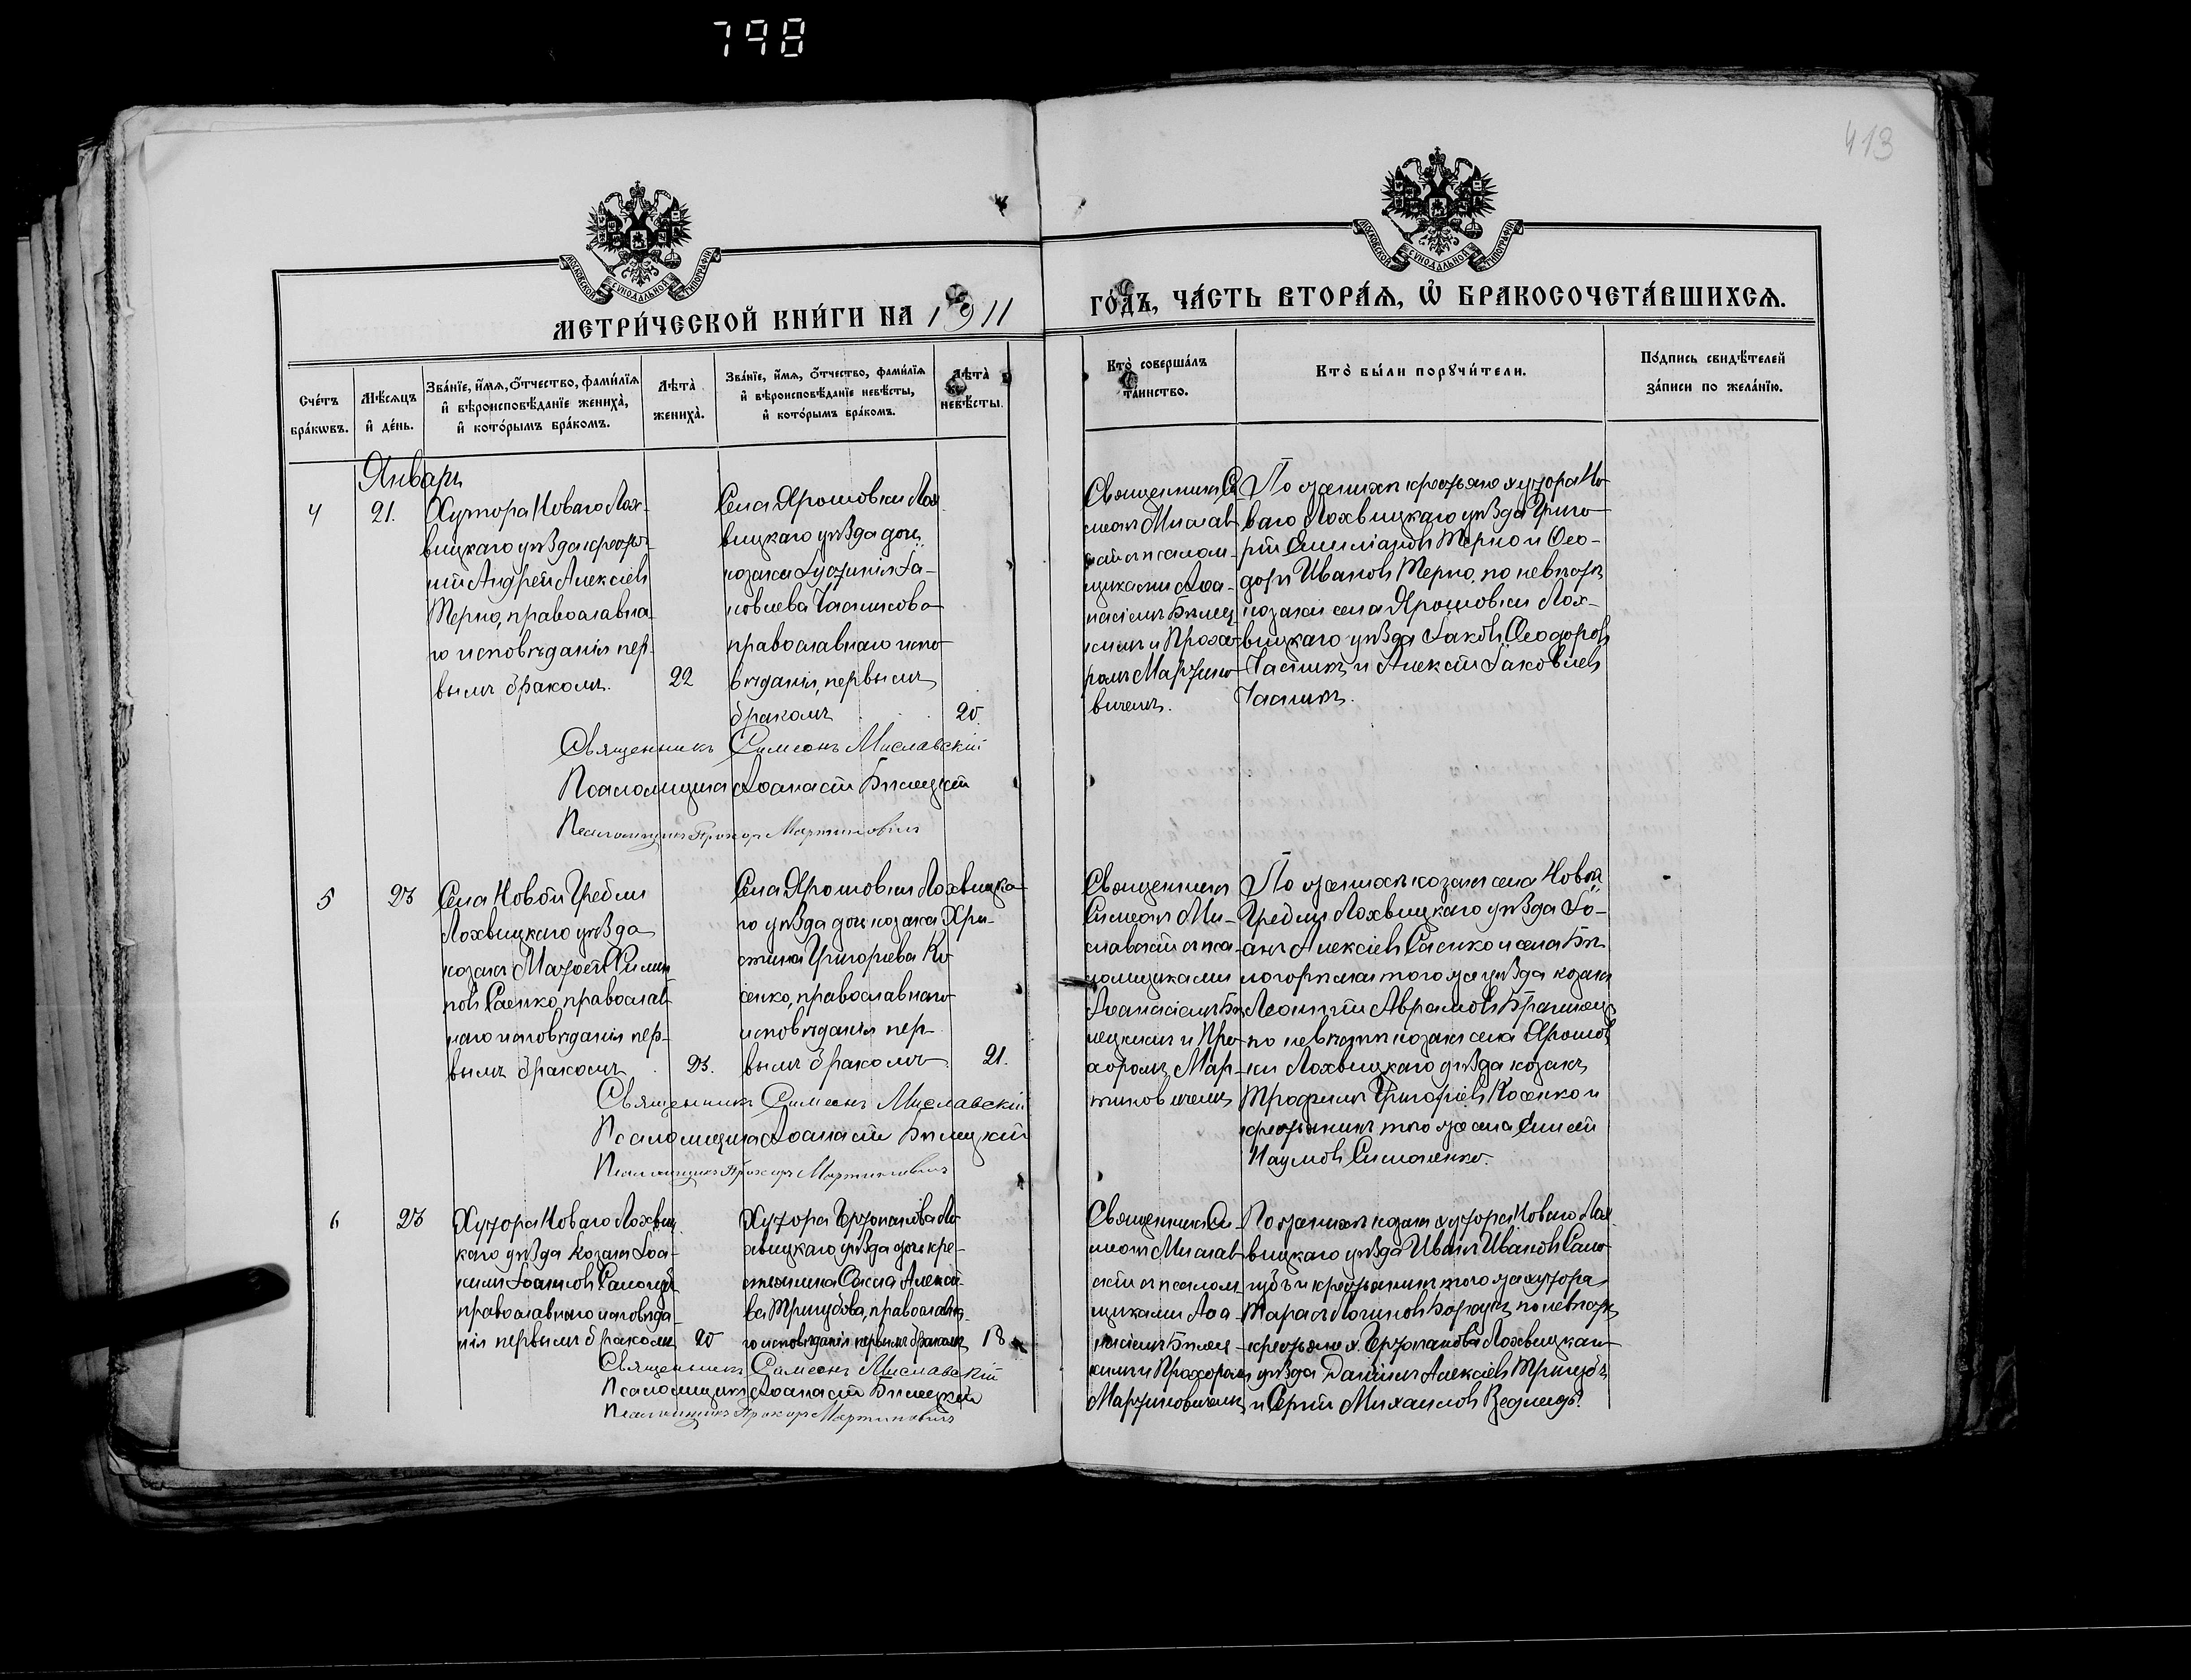 798
413
МОСКОВСКОЙ СѴНОДАЛЬНОЙ ТИПОГРАФІИ
МОСКОВСКОЙ СѴНОДАЛЬНОЙ ТИПОГРАФІИ
МЕТРИ́ЧЕСКОЙ КНИ́ГИ НА 1911
ГО́ДЪ, ЧА́СТЬ ВТОРА́Ѧ, Ѽ БРАКОСОЧЕТА́ВШИХСѦ.
Сче́тъ
бра́кѡвъ.
Мѣ́сѧцъ
и҆ де́нь.
Зва́нїе, и҆́мѧ, ѻ҆́тчество, фами́лїѧ
и҆ вѣроисповѣ́данїе жениха̀,
и҆ кото́рымъ бра́комъ.
Лѣ́та̀
жениха̀.
Зва́нїе, и҆́мѧ, ѻ҆́тчество, фами́лїѧ
и҆ вѣроисповѣ́данїе невѣ́сты,
и҆ кото́рымъ бра́комъ.
Лѣ́та̀
невѣ́сты.
Кто̀ соверша́лъ
та́инство.
Кто̀ бы́ли порꙋчи́тели.
По́дпись свидѣ́телей
за́писи по жела́нїю.
Январь
4
21.
Хутора Новаго Лох-
вицкаго уѣзда крестья-
нинъ Андрей Алексіевъ
Терно, православна-
го исповѣданія пер-
вымъ бракомъ.
22
Села Ярошовки Лох
вицкаго уѣзда дочь
козака Іустинія Іа-
ковлева Часникова
православнаго испо
вѣданія, первымъ
бракомъ
20.
Священникъ Си
меонъ Мислав
скій съ псалом-
щиками Аѳа-
насіемъ Бѣлец
кимъ и Прохо
ромъ Мартино
вичемъ.
По женихѣ крестьяне хутора Но
ваго Лохвицкаго уѣзда Григо
рій Терно и Ѳео-
доръ Ивановъ Терно, по невѣстѣ
козаки села Ярошовки Лох-
вицкаго уѣзда Іаковъ Ѳеодоровъ
Часникъ и Алексій Іаковлевъ
Часникъ.
Священникъ Симеонъ Миславскій
Псаломщикъ Аѳанасій Бѣлецкій
Псаломщикъ Прохоръ Мартиновичъ
5
23
Села Новой Гребли
Лохвицкаго уѣзда
козакъ Матѳей Филип
повъ Саенко, православ
наго исповѣданія пер-
вымъ бракомъ
23.
Села Ярошовки Лохвицка
го уѣзда дочь козака Хри-
стина Григорьева Ко
сенко, православнаго
исповѣданія пер-
вымъ бракомъ
21.
Священникъ
Симеонъ Ми-
славскій съ пса
ломщиками
Аѳанасіемъ Бѣ
лецкимъ и Про
хоромъ Мар-
тиновичемъ
По женихѣ козакъ села Новой
Гребли Лохвицкаго уѣзда Іо-
аннъ Алексіевъ Саенко и села Бѣ
логорѣлки того же уѣзда козакъ
Леонтій Аврамовъ
по невѣстѣ козакъ села Ярошов
ки Лохвицкаго уѣзда козакъ
Трофимъ Григоріевъ Косенко и
крестьянинъ того же села
Наумовъ Симоненко.
Священникъ Симеонъ Миславскій
Псаломщикъ Аѳанасій Бѣлецкій
Псаломщикъ Прохоръ Мартиновичъ
6
23
Хутора Новаго Лохвиц
каго уѣзда козакъ Іоа-
кимъ Іоанновъ Самогубъ
православнаго исповѣда-
нія первымъ бракомъ
20
Хутора Ло
хвицкаго уѣзда дочь кре-
стьянина Алексіе
ва Тригубова, православна
го исповѣданія первымъ бракомъ
18
Священникъ Си-
меонъ Мислав
скій съ псалом
щиками Аѳа-
насіемъ Бѣлец
кимъ и Прохоромъ
Мартиновичемъ
По женихѣ козакъ хутора Новаго Лох
вицкаго уѣзда Иванъ Ивановъ Само
губъ и крестьянинъ того же хутора
Тарасъ Логиновъ по невѣстѣ
крестьяне х. Лохвицкаго
уѣзда Даніилъ Алексіевъ Тригубъ
и Сергій Михаиловъ Ведмедь.
Священникъ Симеонъ Миславскій
Псаломщикъ Аѳанасій Бѣлецкій
Псаломщикъ Прохоръ Мартиновичъ